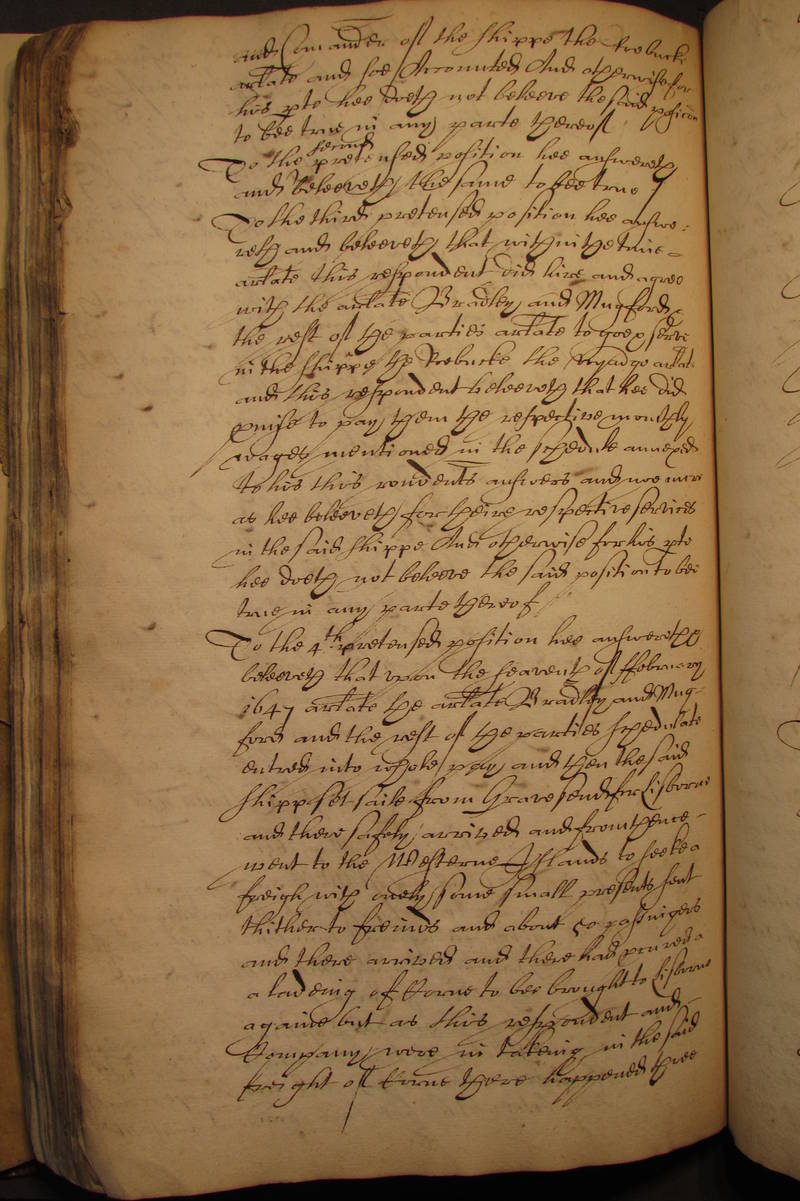 and Comander of the shippe the Roebucke
arlate and soe Accounted And otherwise for
his pte hee doeth not beleeve the said posicon
to bee true in any parte thereof
To the second pretensed position hee answereth
and beleeveth the same to bee true
To the third pretensed position hee answe:
reth and beleeveth that within the time
arlate this respondent did hire and agree
with the arlate Bradley and Mugford
the rest of the parties arlate to goe & serve
in the shippe the Roebucke the voyadge arlate
and this respondent beleeveth that hee did
pmise to pay them the respective monthly
wages mentioned in the schedule annexed
to his this rondents answers and noe more
as hee beleeveth for theire respective services
in the said shippe And otherwise for his pte
hee doeth not beleeve the said position to bee
true in any parte thereof
To the 4th pretensed position hee answereth &
beleeveth that upon the seaventh of ffebruary
1647 arlate the arlate Bradley and Mug-
ford and the rest of the parties schedulate
entred into whole pay and then the said
shipp set saile from Gravesend for Lisborne
and there safely arrived and from thence
went to the Westerne Islands to seeke a
freigh with onely some small presents sent
thither to freinds and about 50 passingers
and there arrived and there had pcured a
a ladeing of Corne to bee brought to Lisborne
againe but as this respondent and
Company were in takeing in the said
freight of Corne there happened three